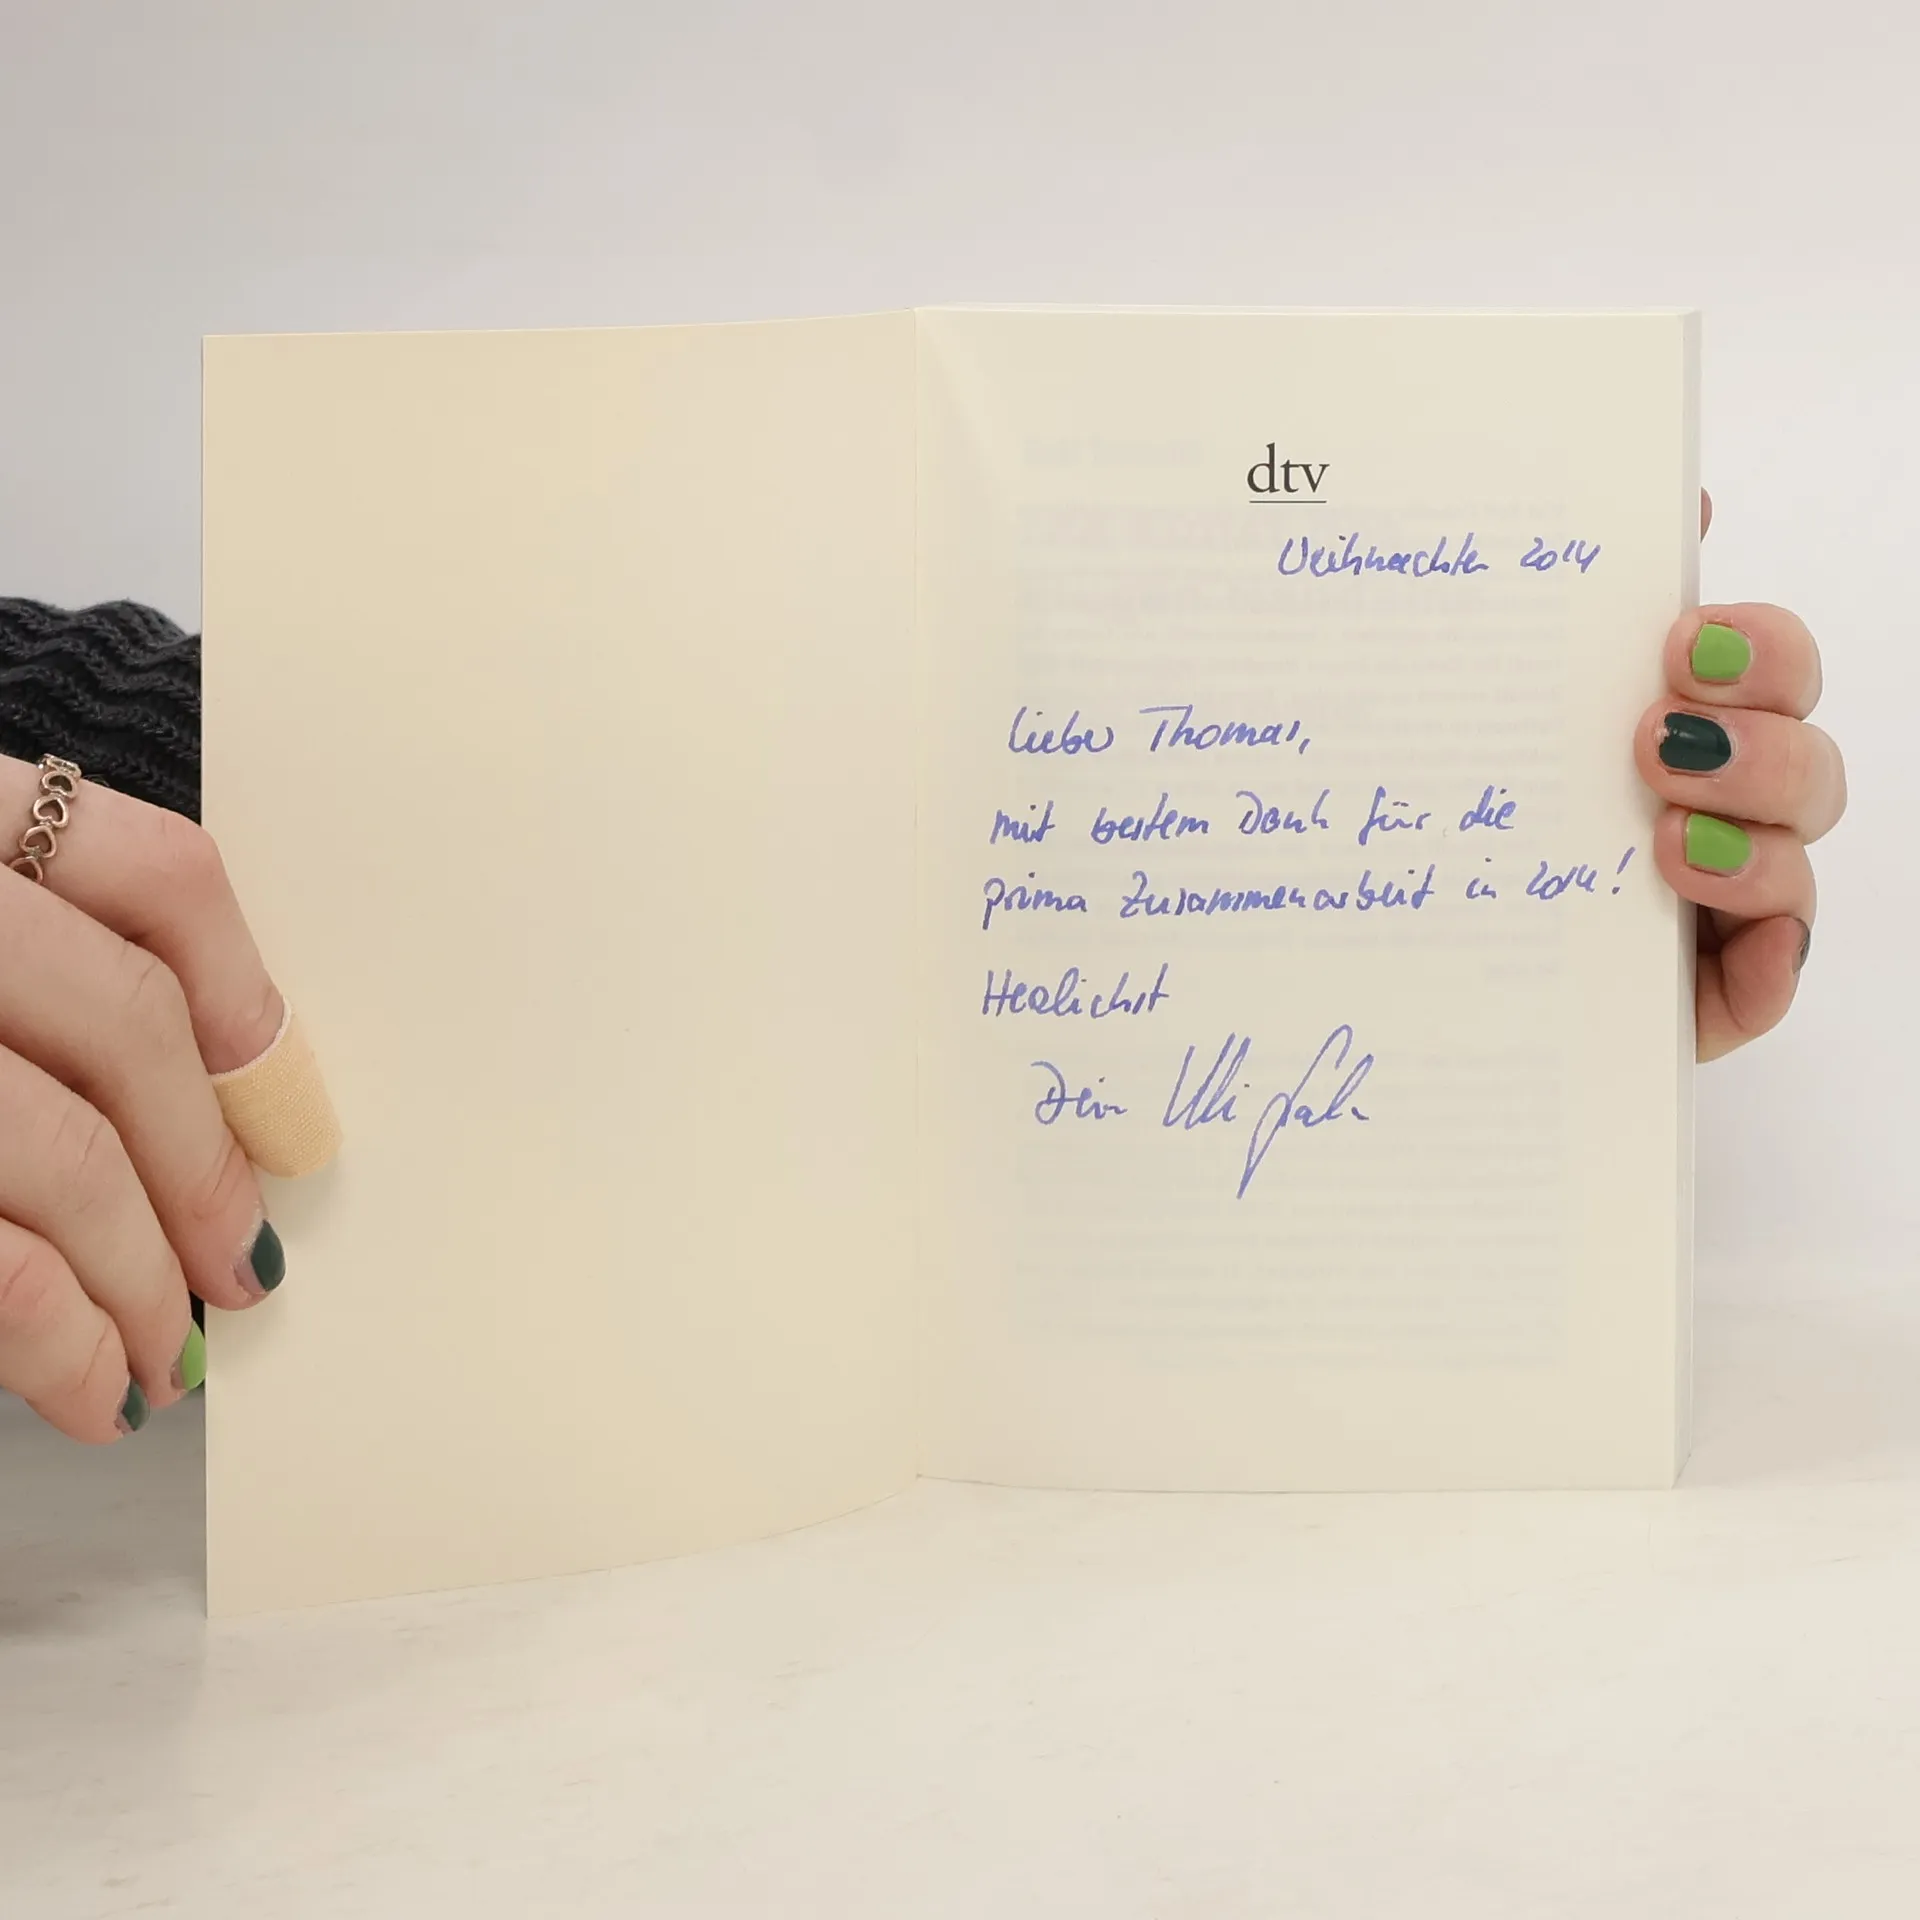 dtv
Weihnachten 2014
Lieber Thomas,
mit bestem Dank für die
prima Zusammenarbeit in 2014!
Herzlichst
Dein Uli